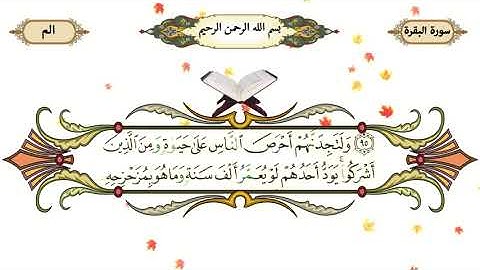 سورة البقرة
بسم الله الرحمن الرحيم
الم
﴿٩٥﴾ وَلَتَجِدَنَّهُمْ أَحْرَصَ النَّاسِ عَلَىٰ حَيَوٰةٍ وَمِنَ الَّذِينَ
أَشْرَكُوا۟ ۚ يَوَدُّ أَحَدُهُمْ لَوْ يُعَمَّرُ أَلْفَ سَنَةٍ وَمَا هُوَ بِمُزَحْزِحِهِ